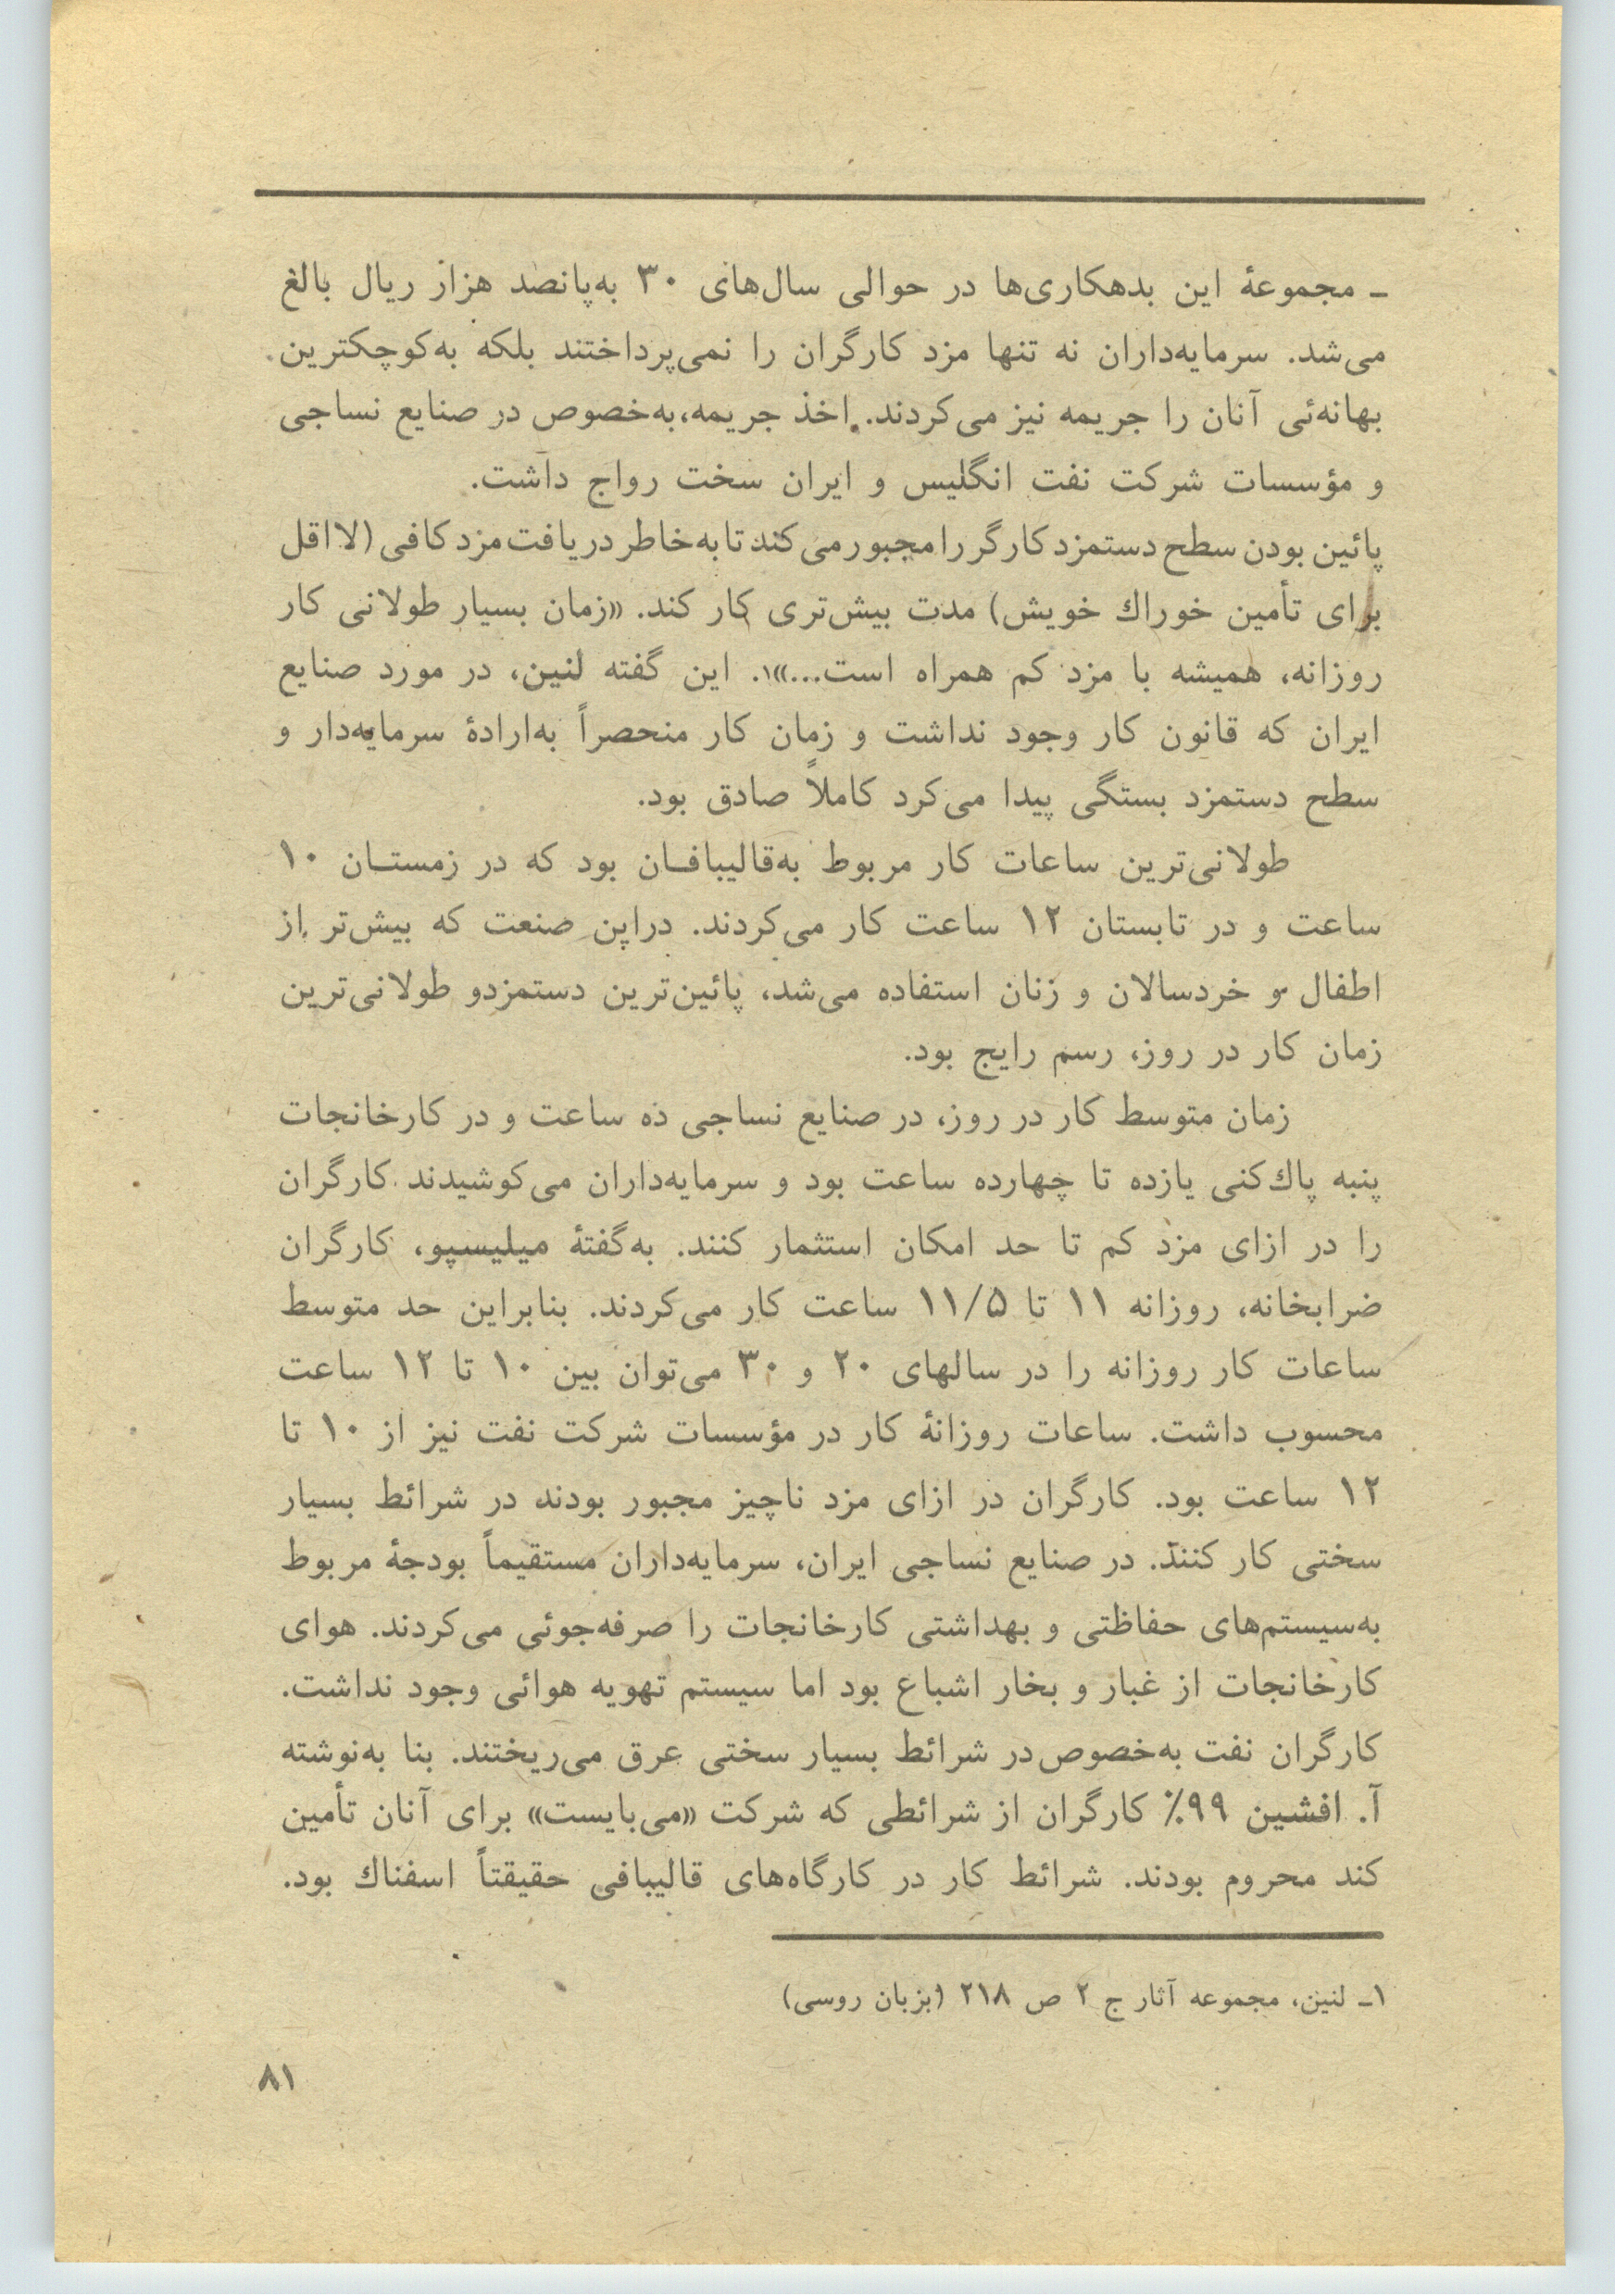 ـ مجموعهٔ این بدهکاری‌ها در حوالی سال‌های ۳۰ به‌پانصد هزار ریال بالغ
می‌شد. سرمایه‌داران نه تنها مزد کارگران را نمی‌پرداختند بلکه به‌کوچکترین
بهانه‌ئی آنان را جریمه نیز می‌کردند. اخذ جریمه، به‌خصوص در صنایع نساجی
و مؤسسات شرکت نفت انگلیس و ایران سخت رواج داشت.
پائین بودن سطح دستمزد کارگر را مجبور می‌کند تا به‌خاطر دریافت مزد کافی (لااقل
برای تأمین خوراك خویش) مدت بیش‌تری کار کند. «زمان بسیار طولانی کار
روزانه، همیشه با مزد کم همراه است...»۱. این گفته لنین، در مورد صنایع
ایران که قانون کار وجود نداشت و زمان کار منحصراً به‌ارادهٔ سرمایه‌دار و
سطح دستمزد بستگی پیدا می‌کرد کاملاً صادق بود.
طولانی‌ترین ساعات کار مربوط به‌قالیبافـان بود که در زمستـان ۱۰
ساعت و در تابستان ۱۲ ساعت کار می‌کردند. دراین صنعت که بیش‌تر از
اطفال و خردسالان و زنان استفاده می‌شد، پائین‌ترین دستمزدو طولانی‌ترین
زمان کار در روز، رسم رایج بود.
زمان متوسط کار در روز، در صنایع نساجی ده ساعت و در کارخانجات
پنبه پاك‌کنی یازده تا چهارده ساعت بود و سرمایه‌داران می‌کوشیدند کارگران
را در ازای مزد کم تا حد امکان استثمار کنند. به‌گفتهٔ میلیسپو، کارگران
ضرابخانه، روزانه ۱۱ تا ۱۱/۵ ساعت کار می‌کردند. بنابراین حد متوسط
ساعات کار روزانه را در سالهای ۲۰ و ۳۰ می‌توان بین ۱۰ تا ۱۲ ساعت
محسوب داشت. ساعات روزانهٔ کار در مؤسسات شرکت نفت نیز از ۱۰ تا
۱۲ ساعت بود. کارگران در ازای مزد ناچیز مجبور بودند در شرائط بسیار
سختی کار کنند. در صنایع نساجی ایران، سرمایه‌داران مستقیماً بودجهٔ مربوط
به‌سیستم‌های حفاظتی و بهداشتی کارخانجات را صرفه‌جوئی می‌کردند. هوای
کارخانجات از غبار و بخار اشباع بود اما سیستم تهویه هوائی وجود نداشت.
کارگران نفت به‌خصوص در شرائط بسیار سختی عرق می‌ریختند. بنا به‌نوشته
آ. افشین ۹۹٪ کارگران از شرائطی که شرکت «می‌بایست» برای آنان تأمین
کند محروم بودند. شرائط کار در کارگاه‌های قالیبافی حقیقتاً اسفناك بود.
۱ـ لنین، مجموعه آثار ج ۲ ص ۲۱۸ (بزبان روسی)
۸۱